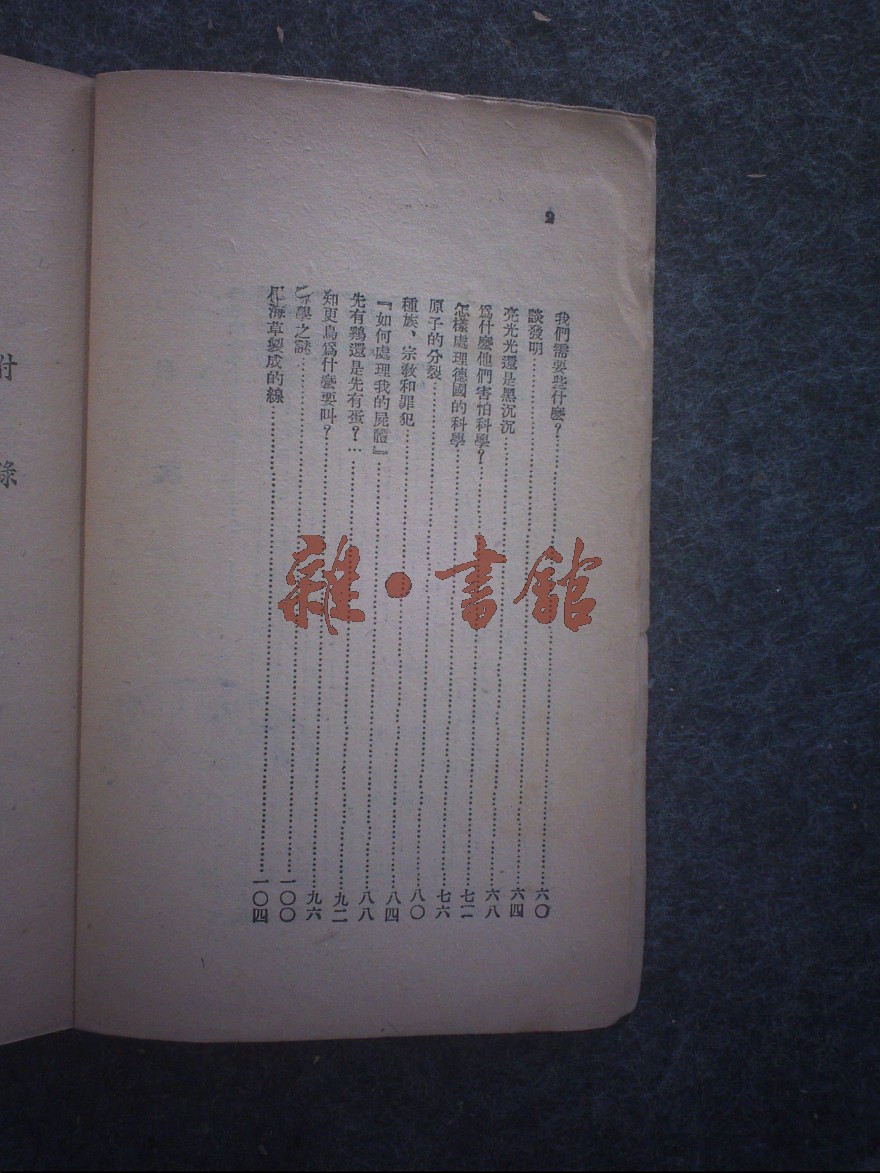 2
我們需要些什麼？……六〇
談發明……六四
亮光光還是黑沉沉……六八
爲什麼他們害怕科學？……七二
怎樣處理德國的科學……七六
原子的分裂……八〇
種族、宗教和罪犯……八四
『如何處理我的屍體』……八八
先有鷄還是先有蛋？……九二
知更鳥爲什麼要叫？……九六
學之謎……一〇〇
用海草製成的線……一〇四
附錄
雜·書館